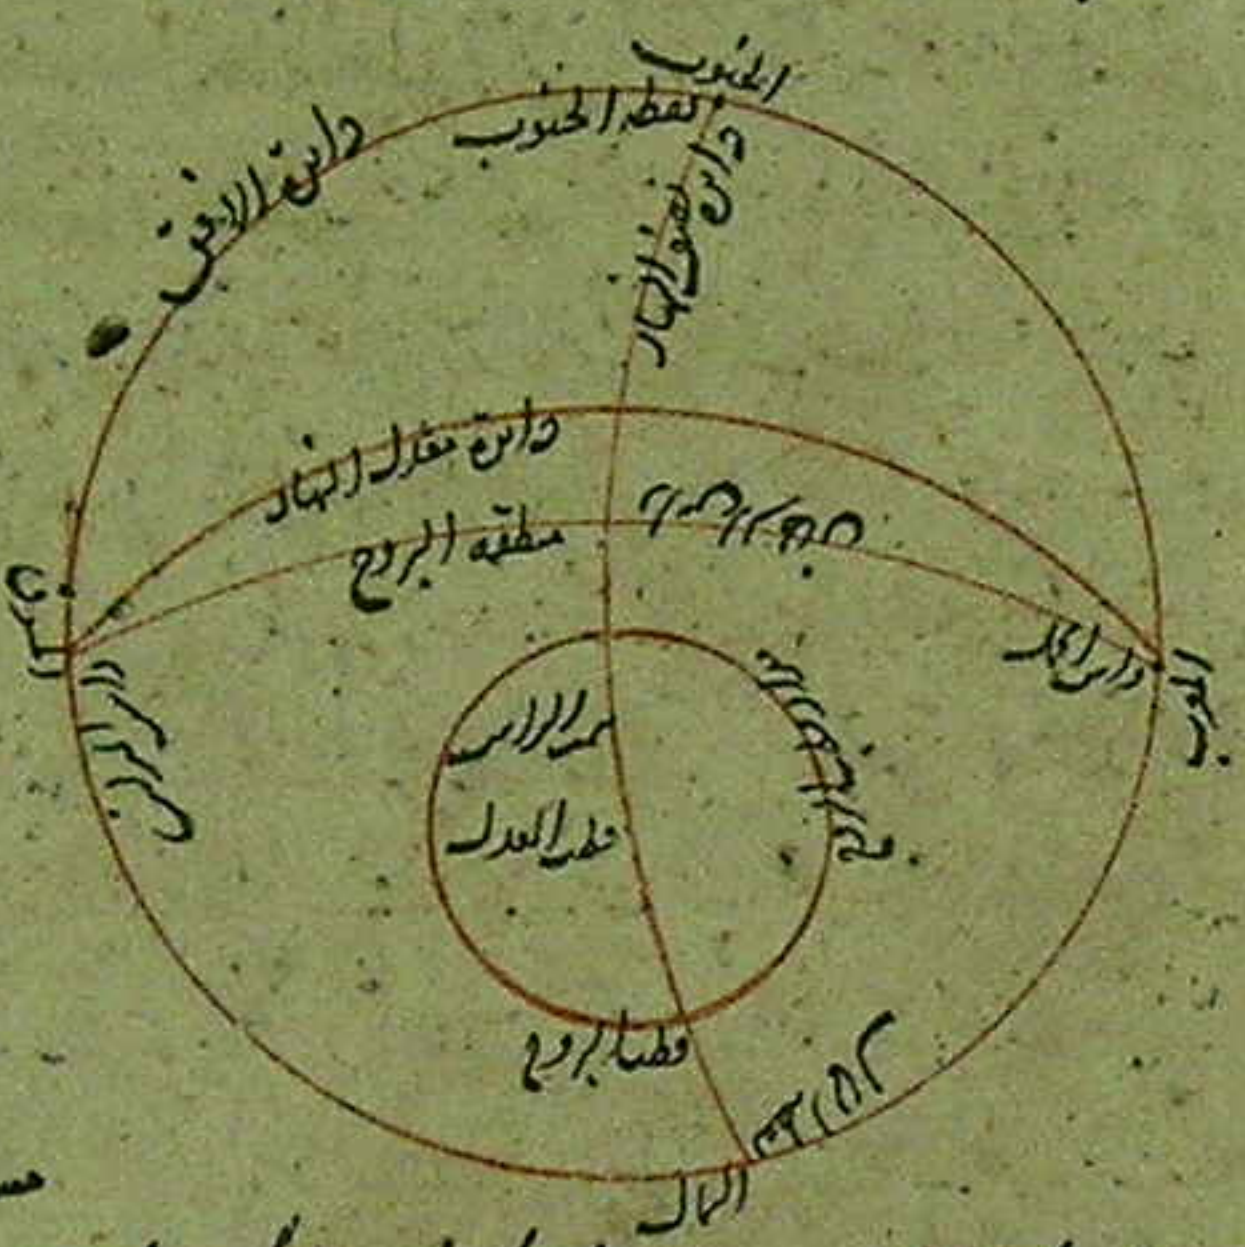 الجنوب
نقطه الجنوب
دائرة الافق
دائره نصف النهار
دائرة معدل النهار
منطقه البروج
المشرق
المغرب
راس الحمل
راس الميزان
سمت الراس
قطب المعدل
قطب البروج
الشمال